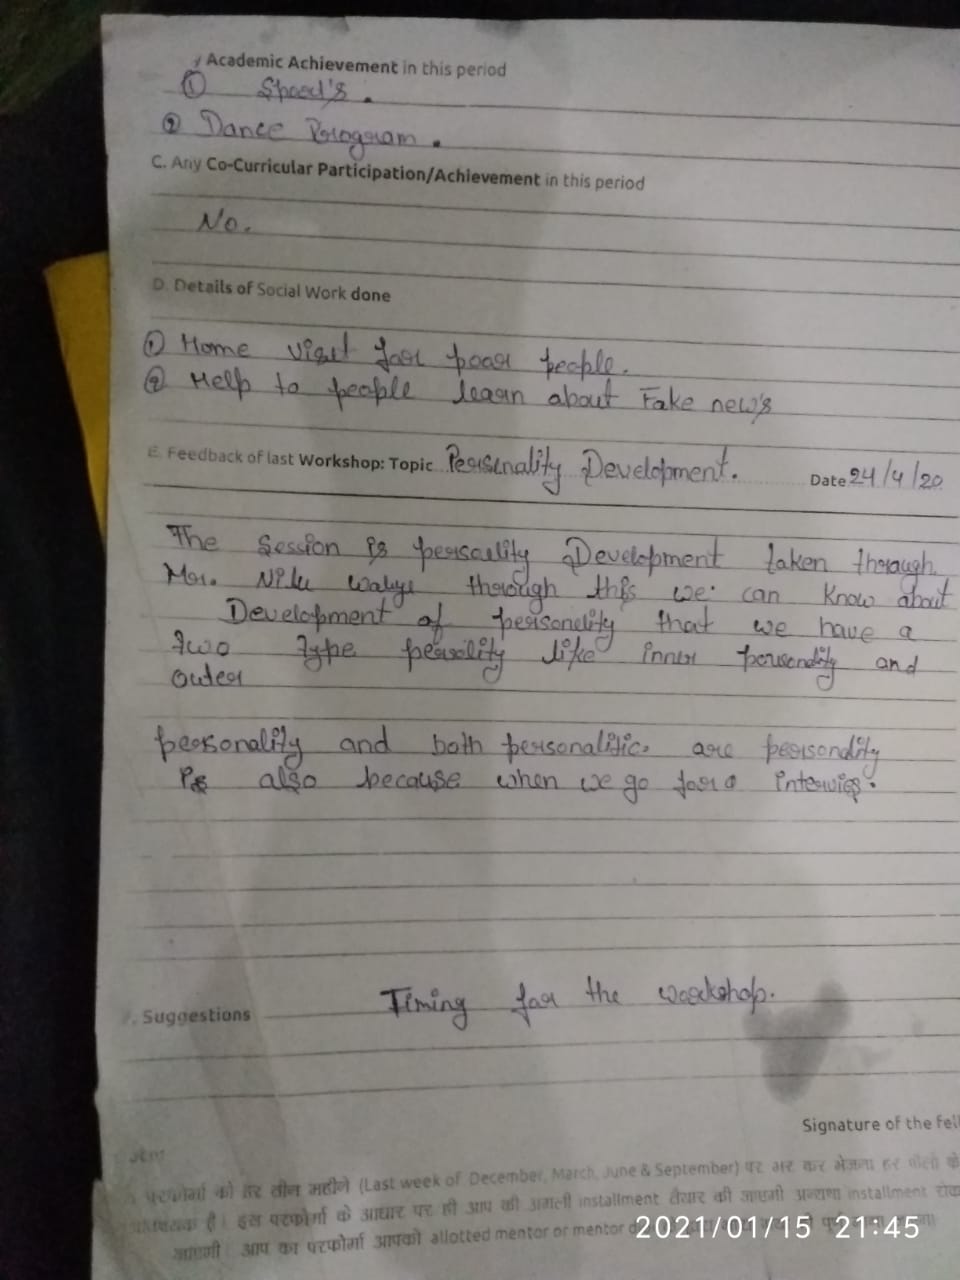 Academic Achievement in this period
① Spoed's.
② Dance Program.
C. Any Co-Curricular Participation/Achievement in this period
No.
D. Details of Social Work done
① Home visit for poor people.
② Help to people learn about Fake new's
E. Feedback of last Workshop: Topic Persinality Development. Date 24/4/20
The Session is Development taken through
Mr. through this we can know about
Development of personelity that we have a
two type like inner and
outer
personality and both are
is also because when we go for a
Timing for the workshop.
Suggestions
Signature of the fel
परफोर्मा को हर तीन महीने (Last week of December, March, June & September) पर भर कर भेजना हर
है। इस परफोर्मा के आधार पर ही आप की अगली installment तैयार की जाएगी अन्यथा installment रोक
जाएगी आप का परफोर्मा आपको allotted mentor or mentor
2021/01/15 21:45